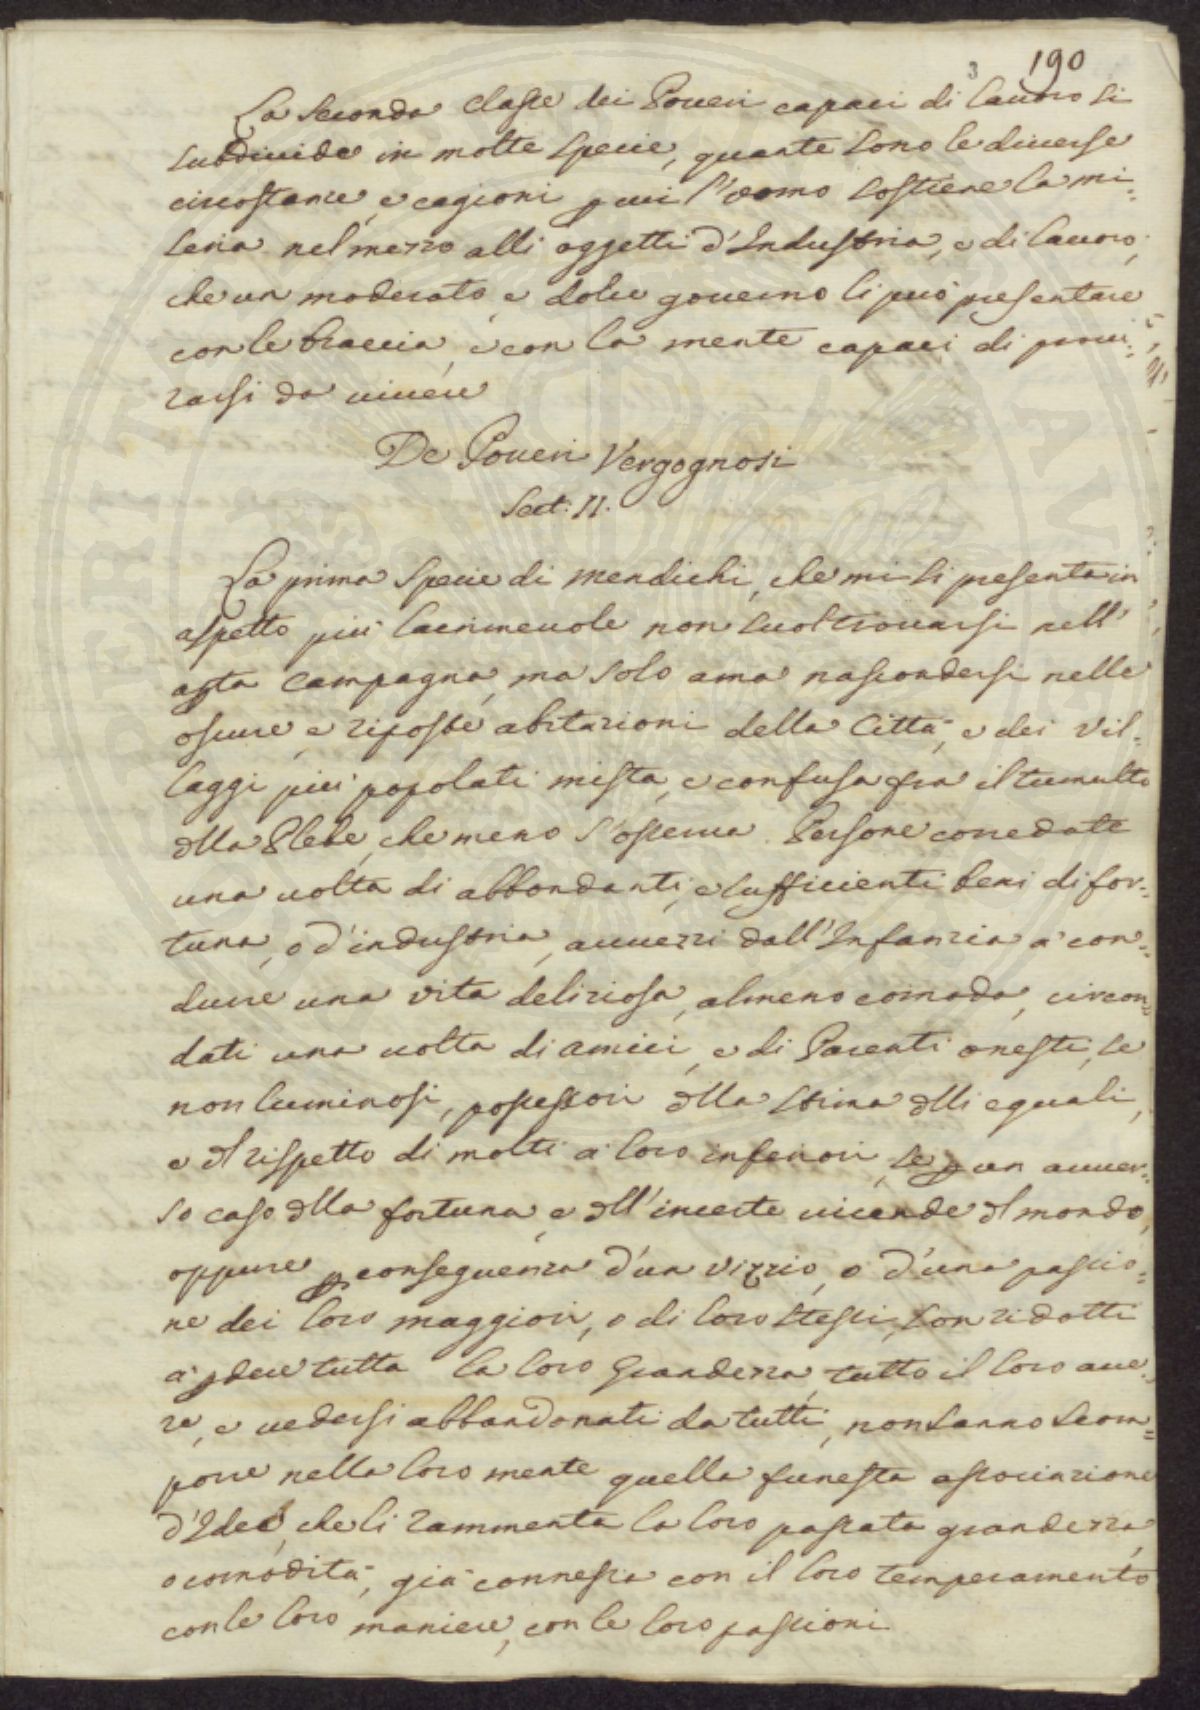 3 190
La seconda classe dei Poveri capaci di lauoro si
subdiuide in molte specie, quante sono le diuerse
circostanze, e cagioni p cui l'uomo sostiene la mi=
seria nel mezzo alli oggetti d'Industria, e di lauoro,
che un moderato, e dolce gouerno li può presentare
con le braccia, e con la mente capaci di procu=
rarsi da uiuere
De Poueri Vergognosi
Sect: II.
La prima specie di mendichi, che mi si presenta in
aspetto più lacrimeuole non suol trouarsi nell'
apta campagna, ma solo ama nascondersi nelle
oscure, e riposte abitazioni della Città, e dei Vil=
laggi più popolati mista, e confusa fra il tumulto
dlla Plebe, che meno s'osserua. Persone corredate
una uolta di abbondanti, e sufficienti beni di for=
tuna, o d'industria, auuezzi dall'Infanzia a con=
durre una vita deliziosa, almeno comoda, circon=
dati una uolta di amici, e di Parenti onesti, se
non luminosi, possessori dlla stima dlli eguali,
e dl rispetto di molti a loro inferiori, se p un auuer=
so caso dlla fortuna, e dll'incerte uicende dl mondo,
oppure p conseguenza d'un vizzio, o d'una passio=
ne dei loro maggiori, o di loro stessi, son ridotti
a pdere tutta la loro grandezza, tutto il loro aue=
re, e uedersi abbandonati da tutti, non sanno scom=
porre nella loro mente quella funesta associazione
d'Idee, che li rammenta la loro passata grandezza,
o comodità, già connessa con il loro temperamento
con le loro maniere, con le loro passioni